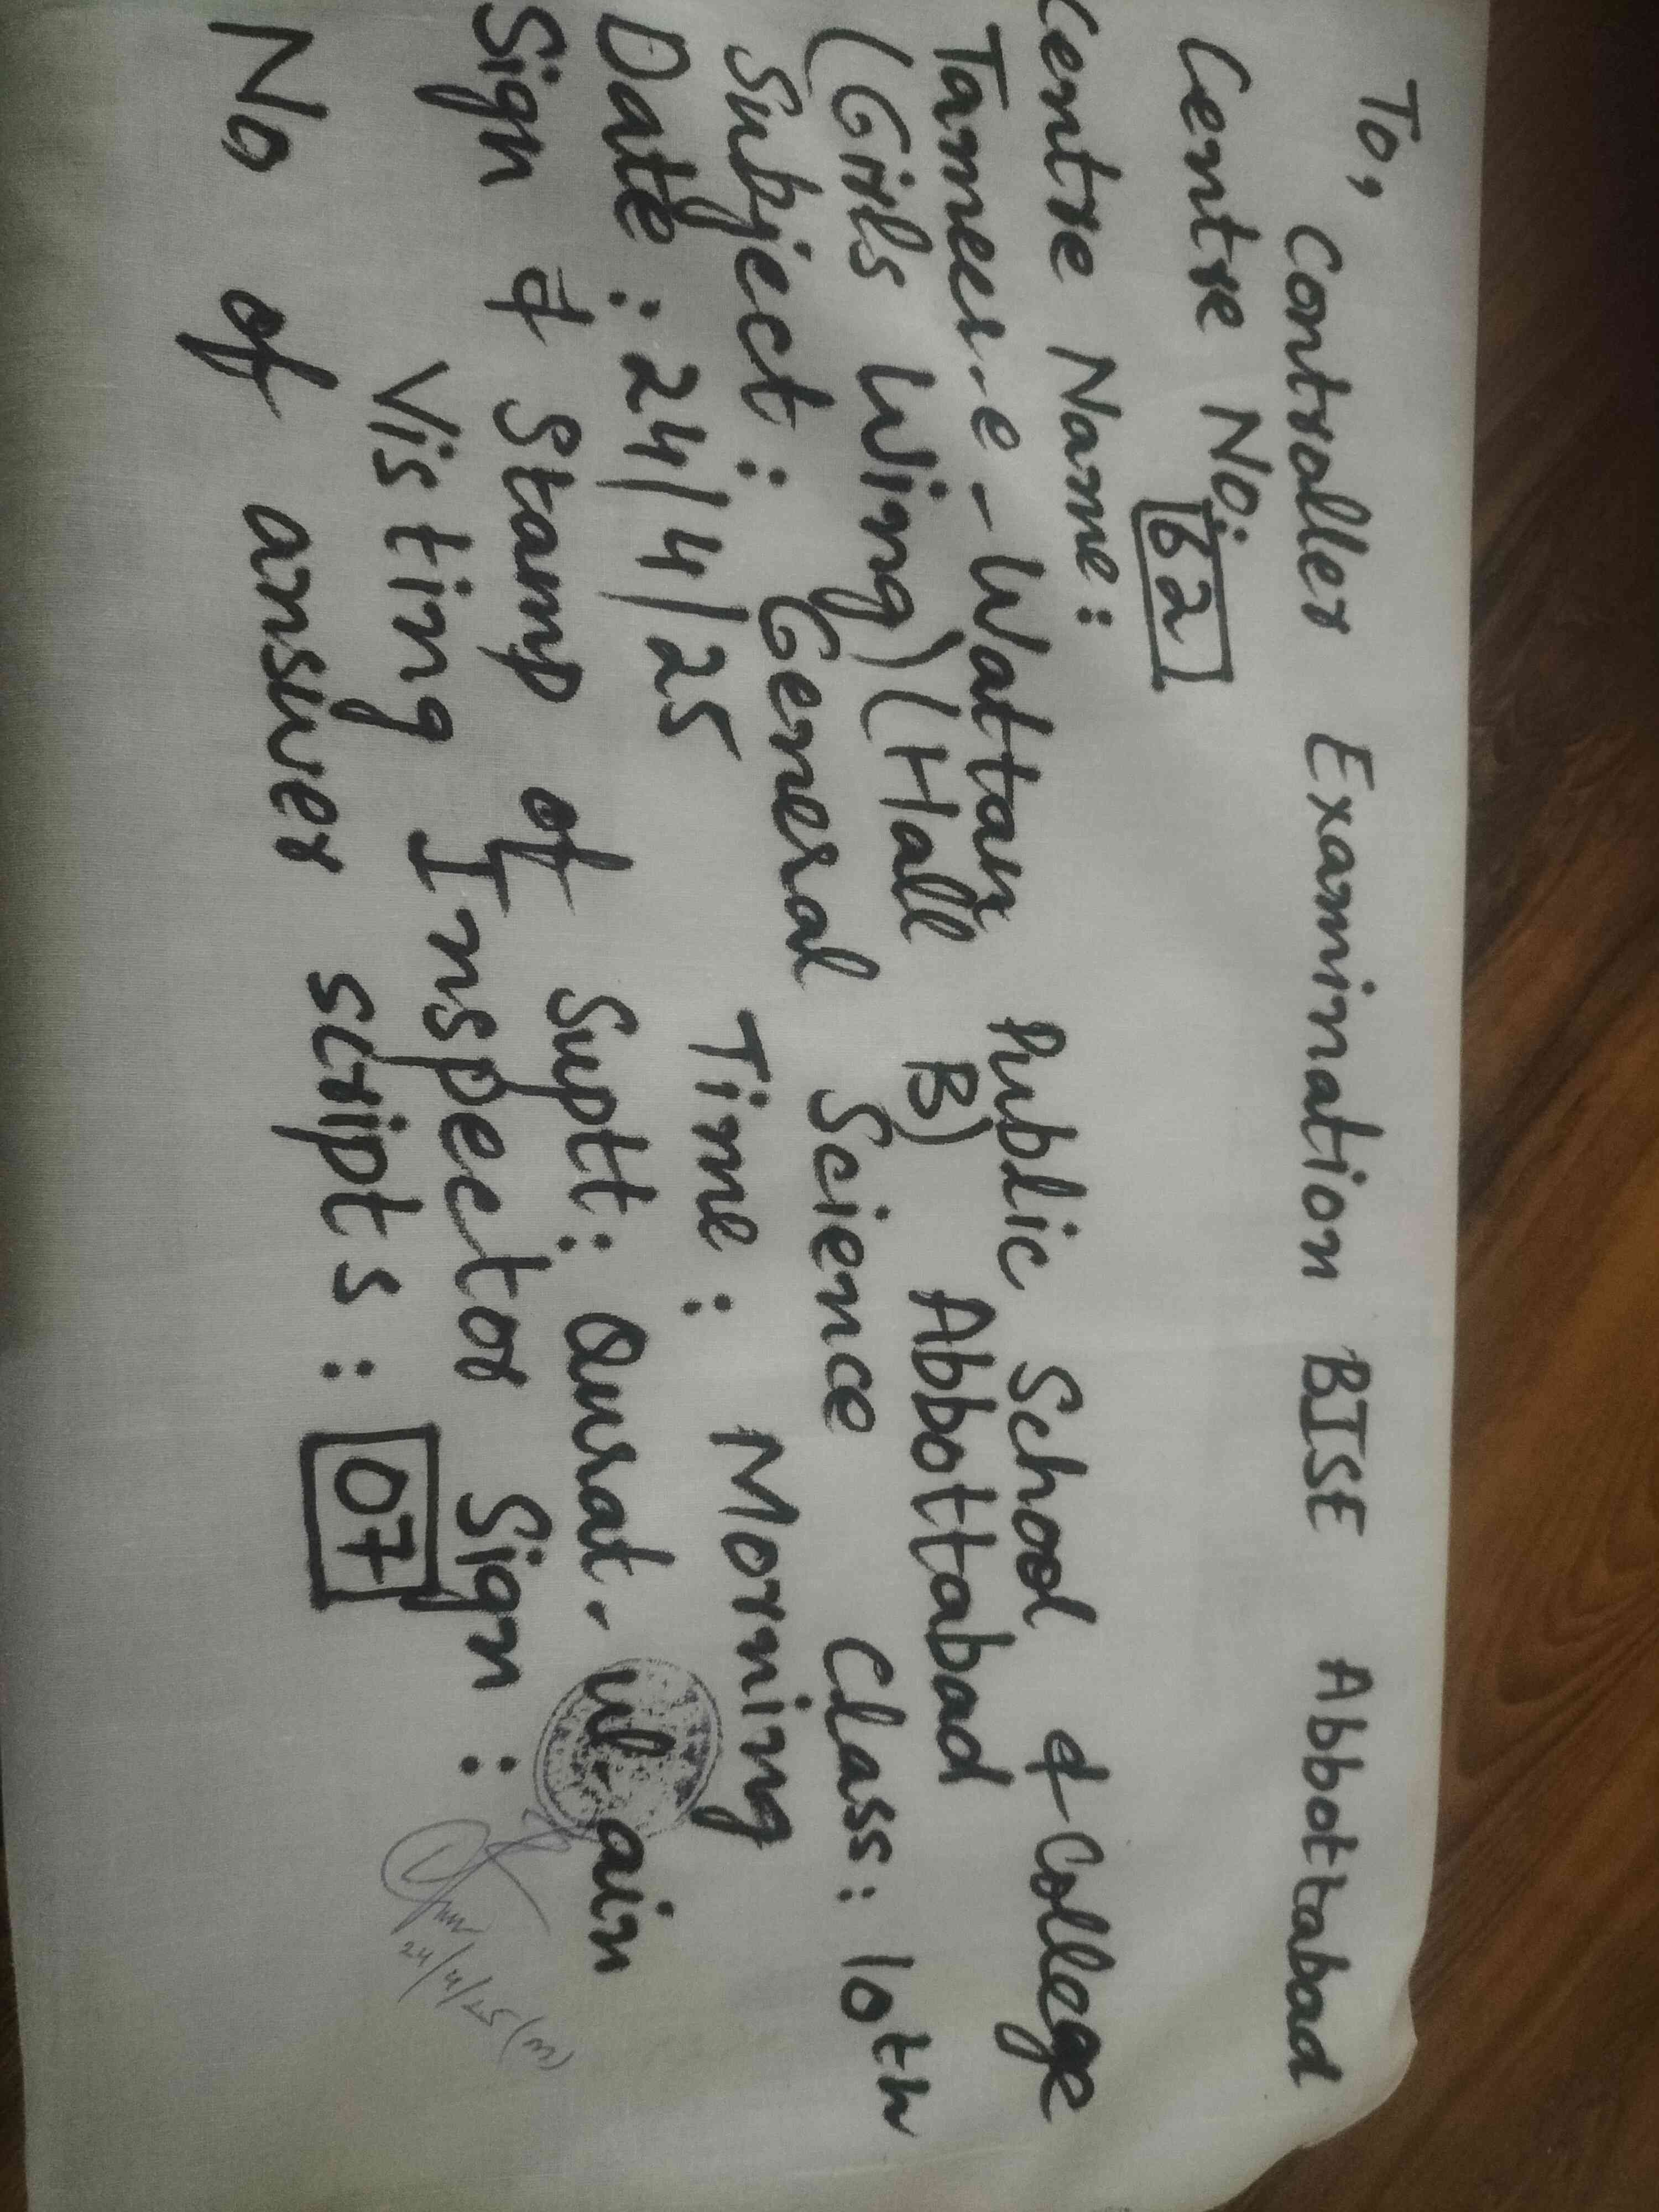 To,
Controller Examination BISE Abbottabad
Centre No: 62
Centre Name:
Tameer-e-Wattan Public School & College
(Girls Wing) (Hall B) Abbottabad
Subject: General Science Class: 10th
Date: 24/4/25 Time: Morning
Sign & Stamp of Suptt: Qurat-ul-ain
Visting Inspector Sign:
24/4/25 (m)
No of answer scripts: 07